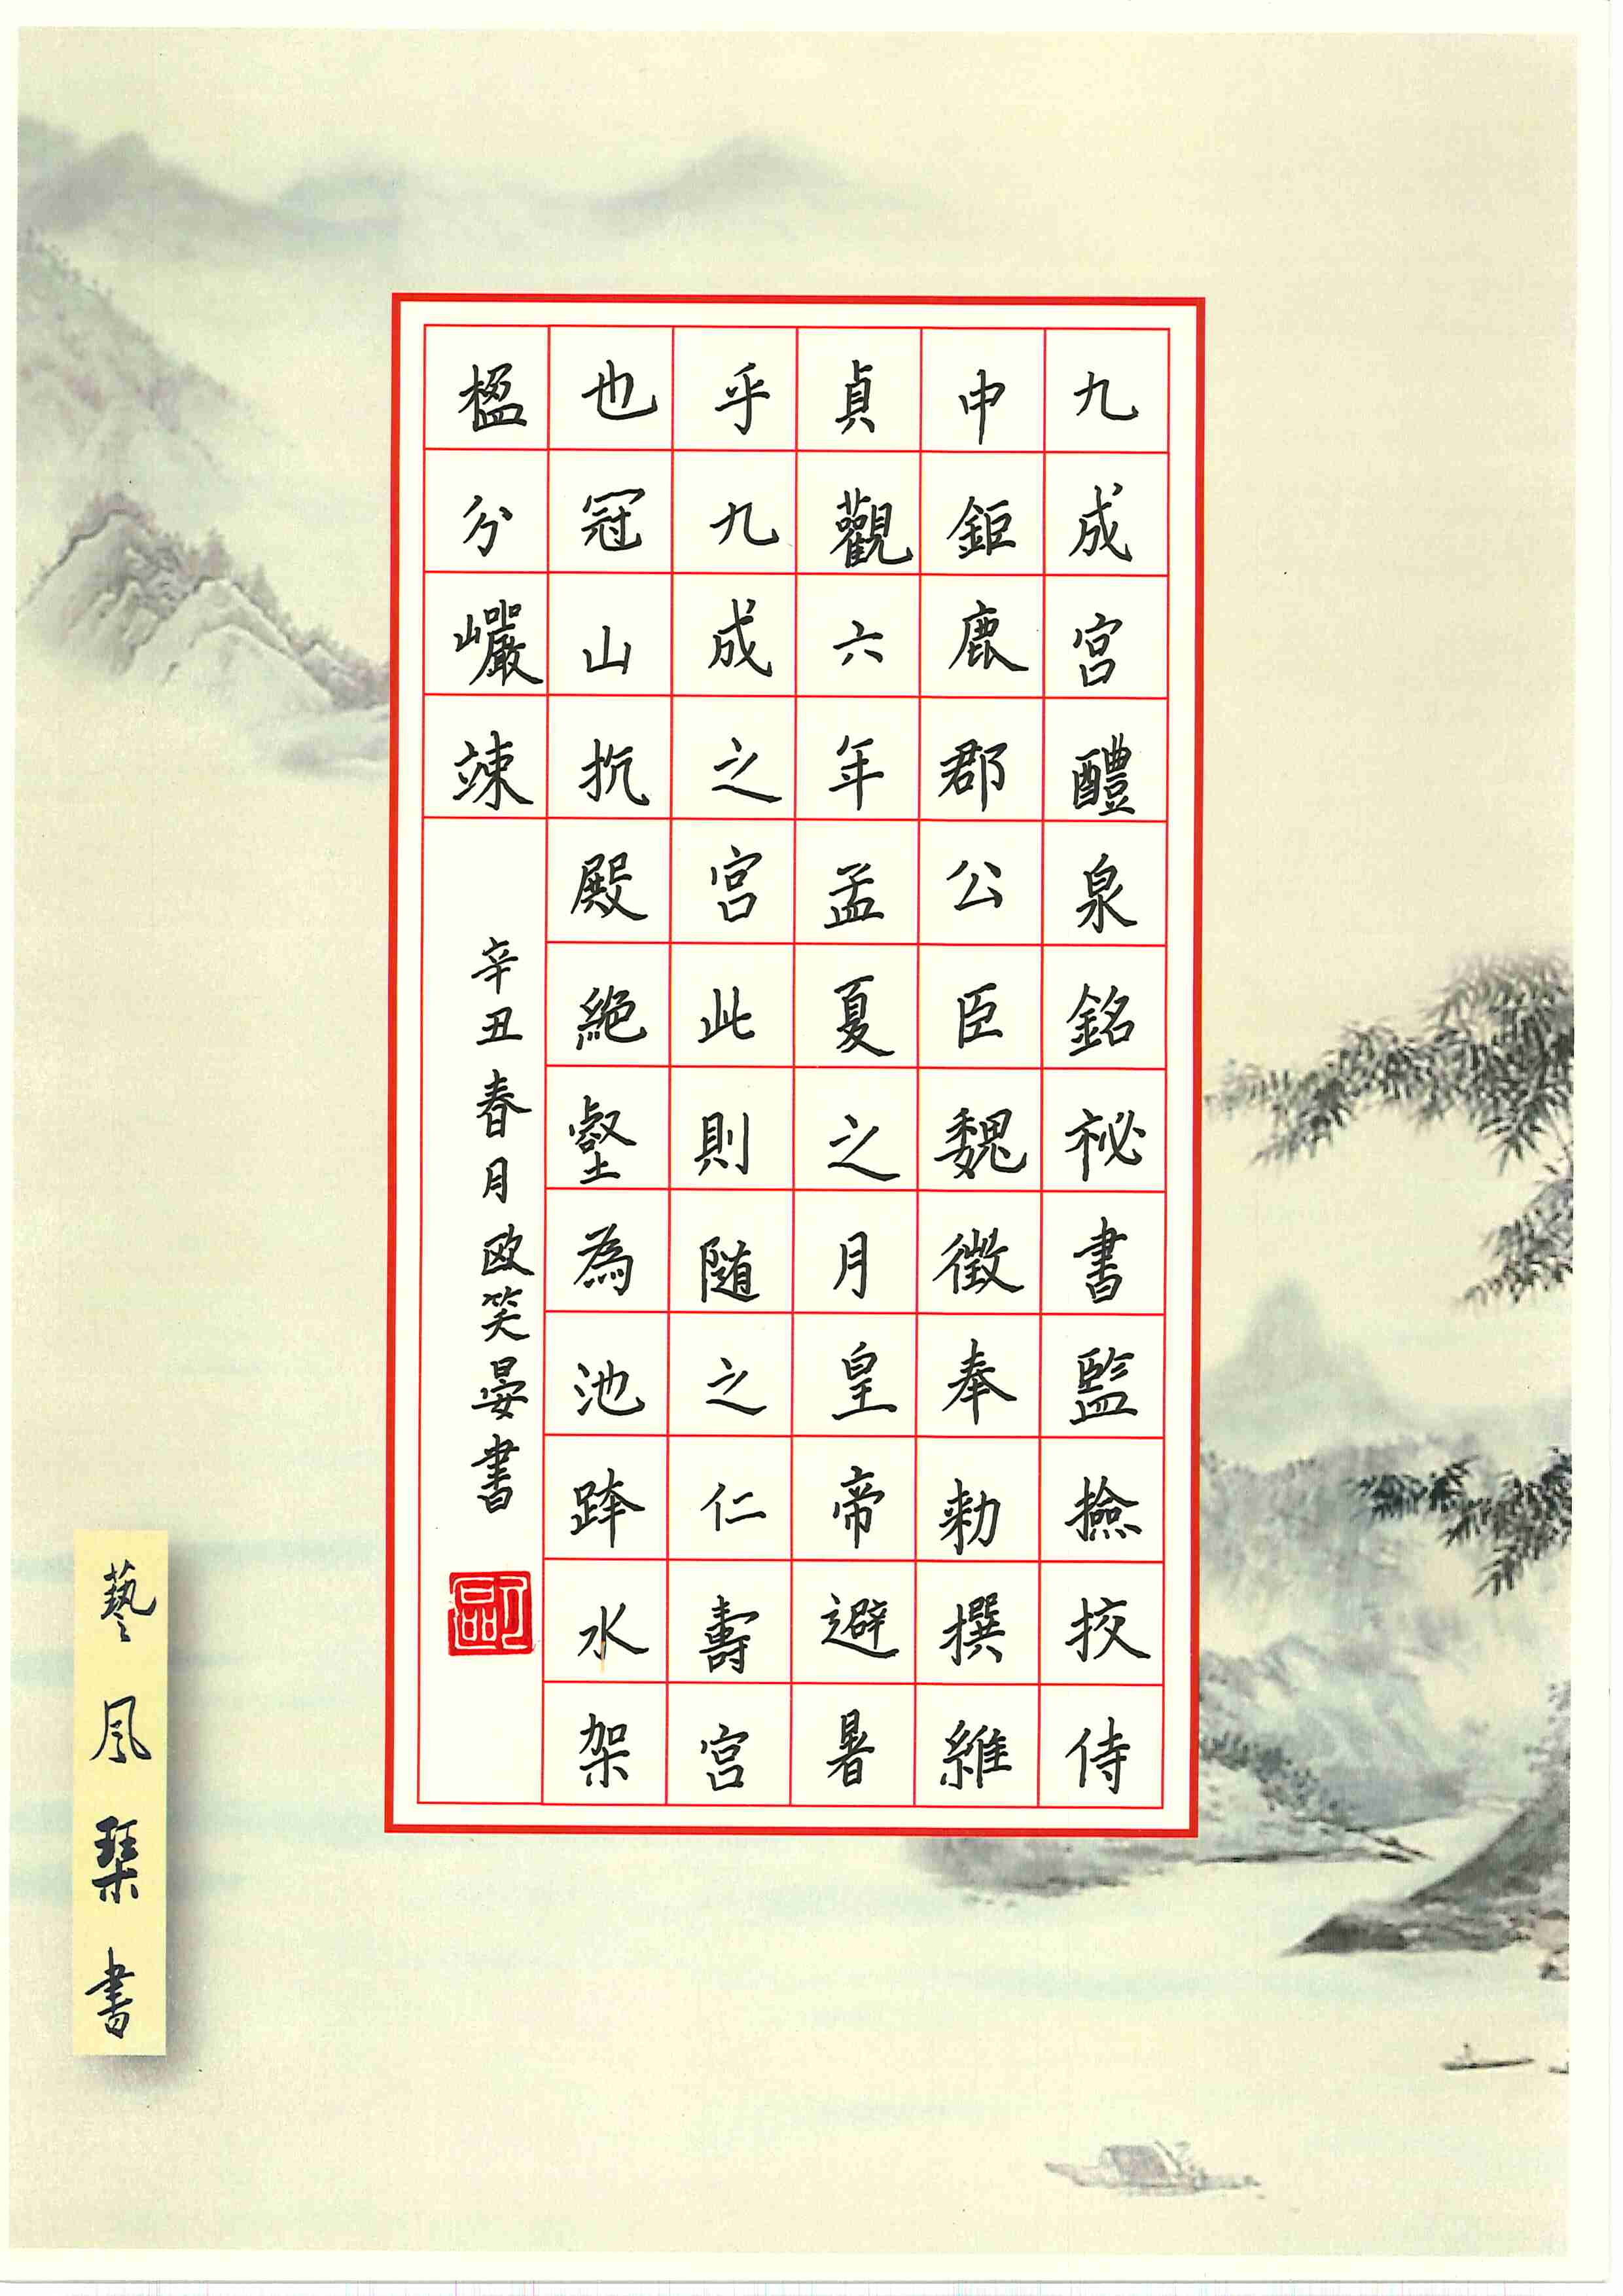 九成宮醴泉銘祕書監撿挍侍
中鉅鹿郡公臣魏徵奉勑撰維
貞觀六年孟夏之月皇帝避暑
乎九成之宮此則隨之仁壽宮
也冠山抗殿絶壑為池跨水架
楹分巖竦
辛丑春月欧笑晏書
藝風琹書